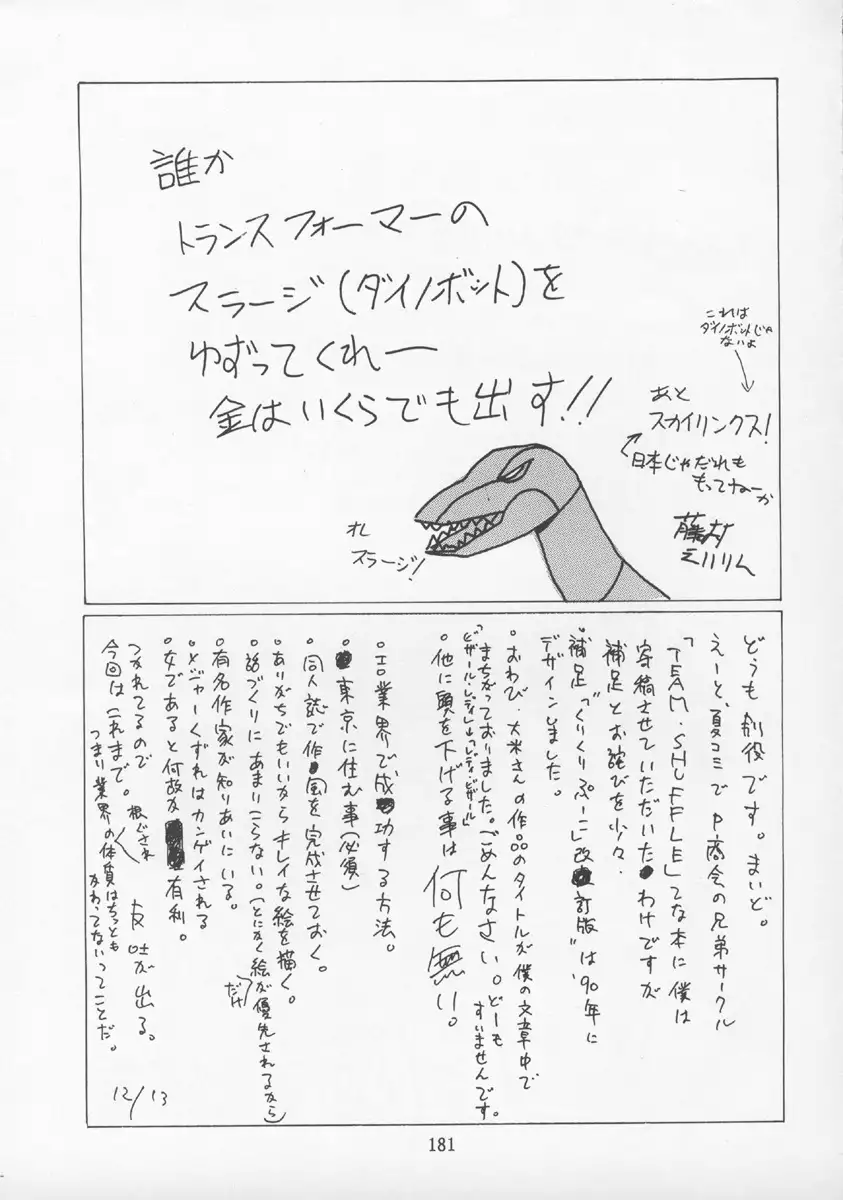 誰か
トランスフォーマーの
スラージ(ダイノボット)を
ゆずってくれー
金はいくらでも出す!!
これは
ダイノボットじゃ
ないよ
あと
スカイリンクス!
日本じゃだれも
もってねーか
藤村
オレ
スラージ!
どうも 削役です。まいど。
えーと、夏コミでP商会の兄弟サークル
「TEAM・SHUFFLE」てな本に僕は
寄稿させていただいたわけですが
補足とお詫びを少々・
補足「くりくりぷーこ」改訂版"は'90年に
デザインしました。
・おわび・大米さんの作品のタイトルが僕の文章中で
まちがっておりました。ごめんなさい。どーも
すいませんです。
・他に頭を下げる事は 何も無い。
・エロ業界で、成功する方法。
・東京に住む事(必須)
・同人誌で作画を完成させておく。
・ありがちでもいいからキレイな絵を描く。
・話づくりにあまりこらない。(とにかく絵だけが優先されるから)
・有名作家が知りあいにいる。
・メジャーくずれはカンゲイされる
・女であると何故か有利。
つかれてるので
今回はこれまで。
根ぐされ
反吐が出る。
つまり業界の体質はちっとも
かわってないってことだ。
12/13
181